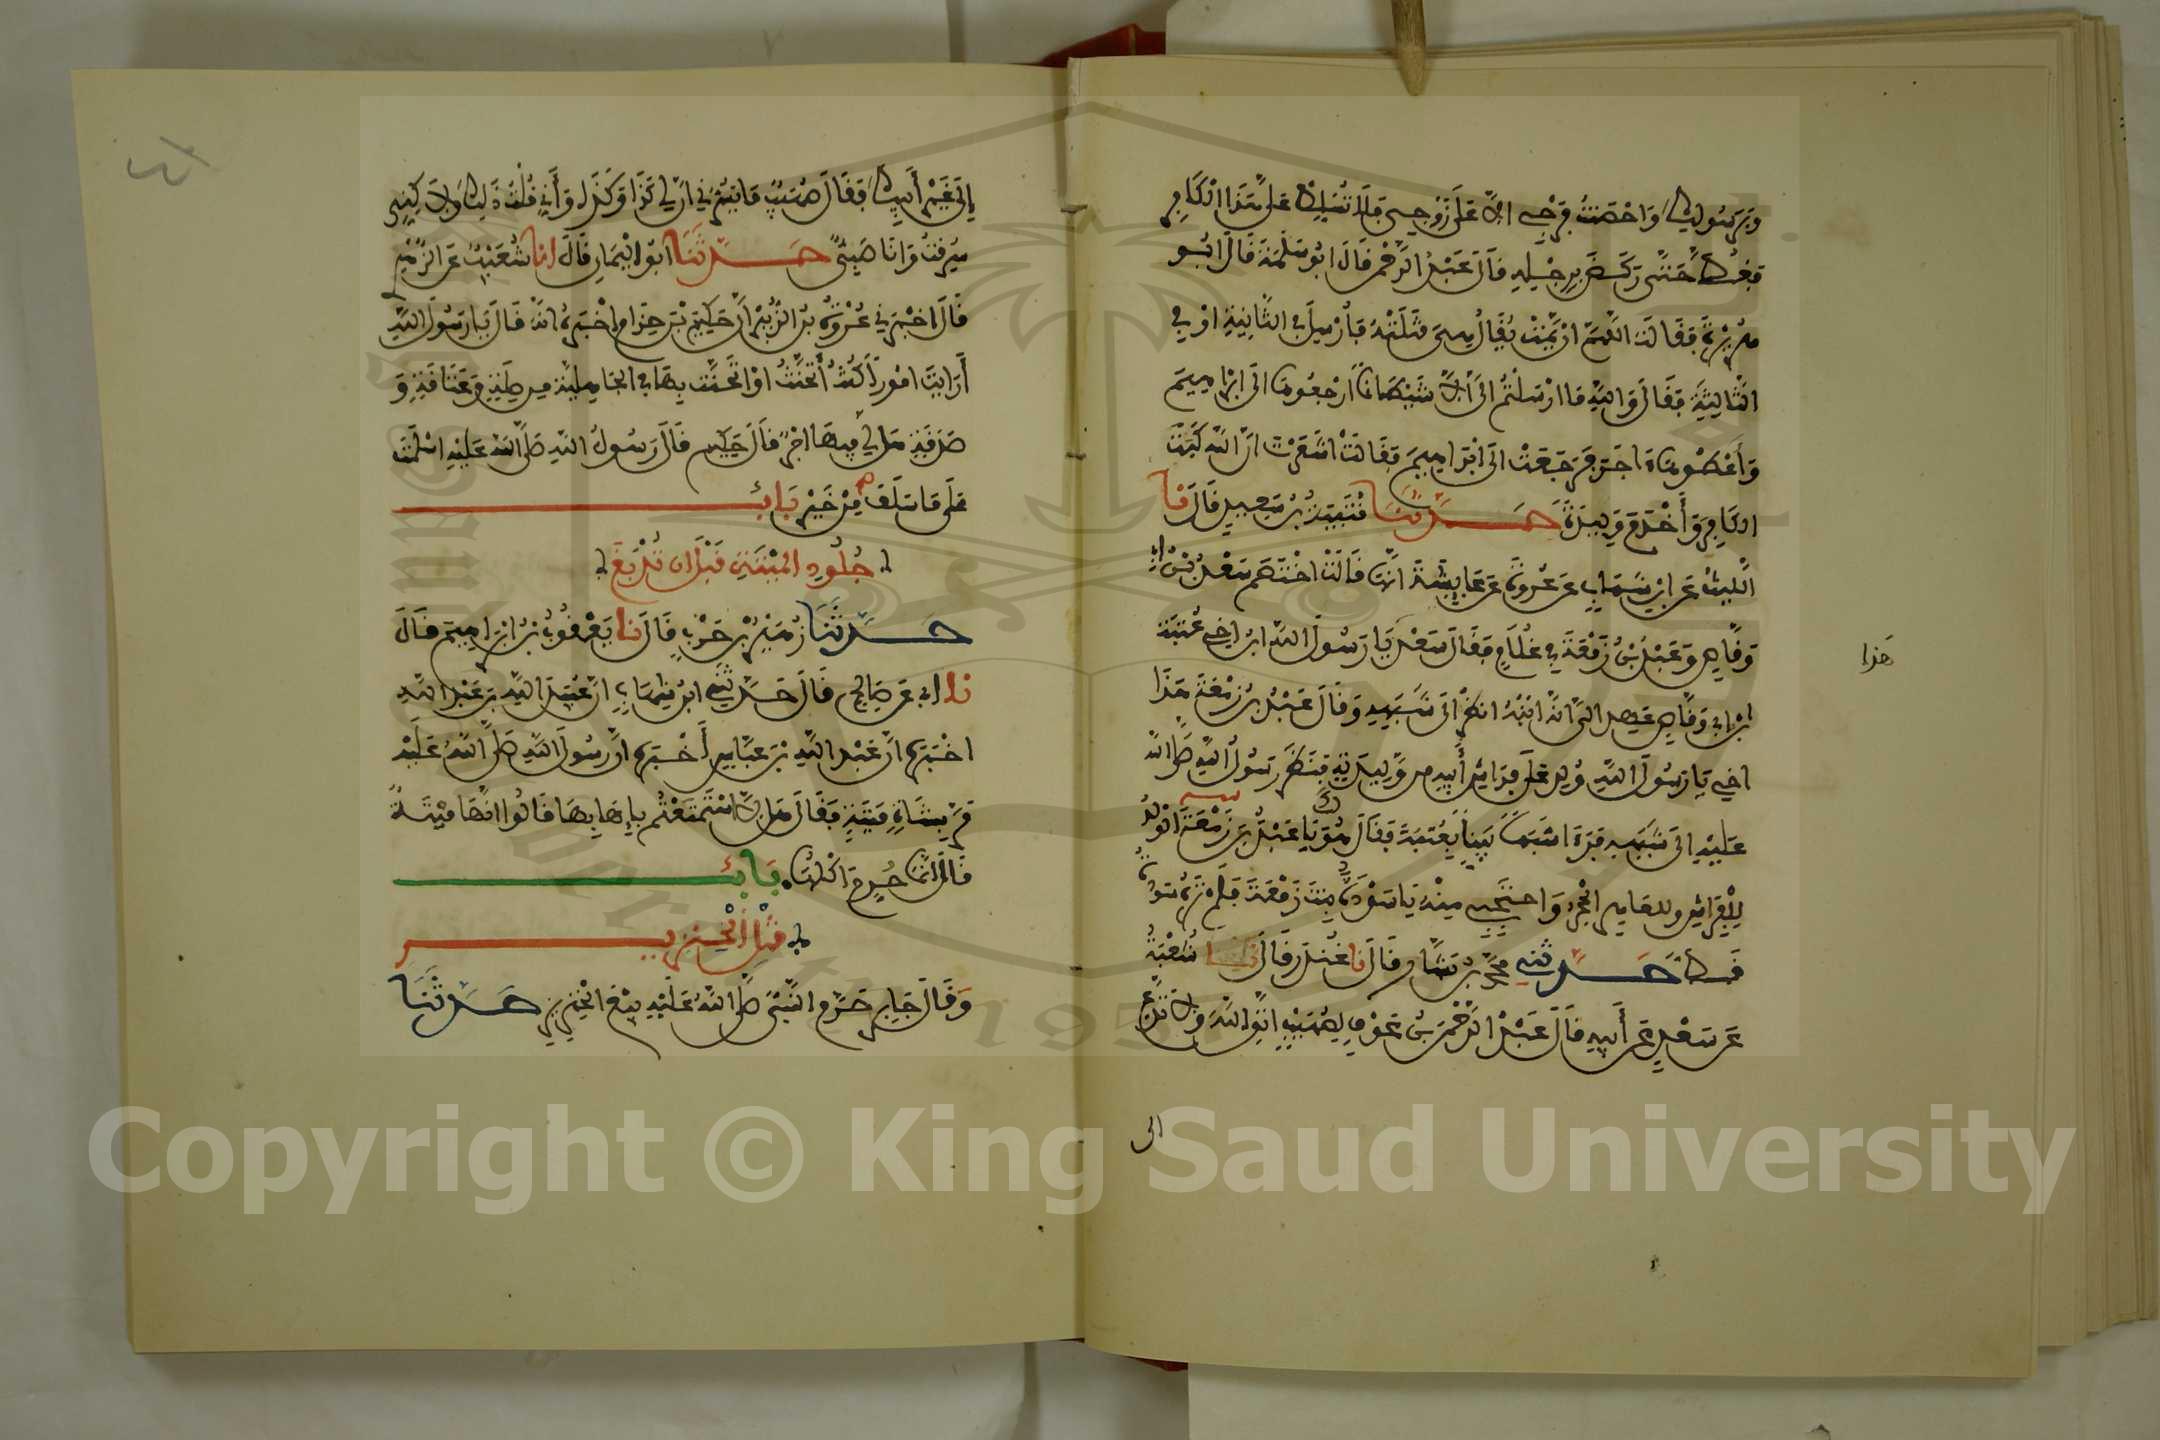 وبرسولك واحصنت فرجي الا على زوجي فلا تسلط علي هذا الكافر
فغط حتى ركض برجله قال عبد الرحمن قال ابو سلمة قال ابو
هريرة فقالت اللهم ان يمت يقال هي قتلته فأرسل في الثانية او في
الثالثة فقال والله ما ارسلتم الي الا شيطانا ارجعوها الى ابراهيم
وأعطوها ءاجر فرجعت الى ابراهيم فقالت اشعرت ان الله كبت
الكافر وأخدم وليدة حدثنا قتيبة بن سعيد قال نا
الليث عن ابن شهاب عن عروة عن عايشة انها قالت اختصم سعد بن ابي
وقاص وعبد بن زمعة في غلام فقال سعد يا رسول الله ابن اخي عتبة
هذا
ابن ابي وقاص عهد الي انه ابنه انظر الى شبهه وقال عبد بن زمعة هذا
اخي يا رسول الله ولد على فراش أبيه من وليدته فنظر رسول الله صلى الله
عليه الى شبهه فرءا شبها بينا بعتبة فقال هو لك يا عبد بن زمعة الولد
للفراش وللعاهر الحجر واحتجبي منه يا سودة بنت زمعة فلم تره سودة
قط حدثني محمد بن بشار قال نا غندر قال نا شعبة
عن سعد عن أبيه قال عبد الرحمن بن عوف لصهيب اتق الله ولا تدع
الى
إلى غير أبيك فقال صهيب ما يسرني ان لي كذا وكذا وأني قلت ذلك ولاكني
سرقت وانا صبي حدثنا ابو اليمان قال انا شعيب عن الزهري
قال اخبرني عروة بن الزبير ان حكيم بن حزام اخبره انه قال يا رسول الله
أرايت امورا كنت أتحنث او اتحنت بها في الجاهلية من صلة وعتاقة و
صدقة هل لي فيها اجر قال حكيم قال رسول الله صلى الله عليه اسلمت
على ما سلف من خير باب
جلود الميتة قبل ان تدبغ
حدثنا زهير بن حرب قال نا يعقوب بن ابراهيم قال
نا ابي عن صالح قال حدثني ابن شهاب ان عبيد الله بن عبد الله
اخبره ان عبد الله بن عباس أخبره ان رسول الله صلى الله عليه
مر بشاة ميتة فقال هلا استمتعتم بإهابها قالوا انها ميتة
قال انما حرم اكلها باب
قتل الخنزير
وقال جابر حرم النبي صلى الله عليه بيع الخنزير حدثنا
Copyright © King Saud University
1957